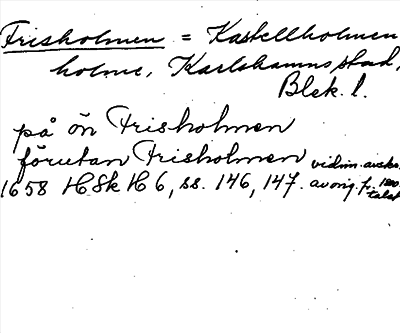 Frisholmen = Kastellholmen
holme, Karlshamns stad,
Blek. l.
på ön Frisholmen
förutan Frisholmen vidim. avskr.
1658 HSk H 6, ss. 146, 147. av orig. fr. 1800-
talet